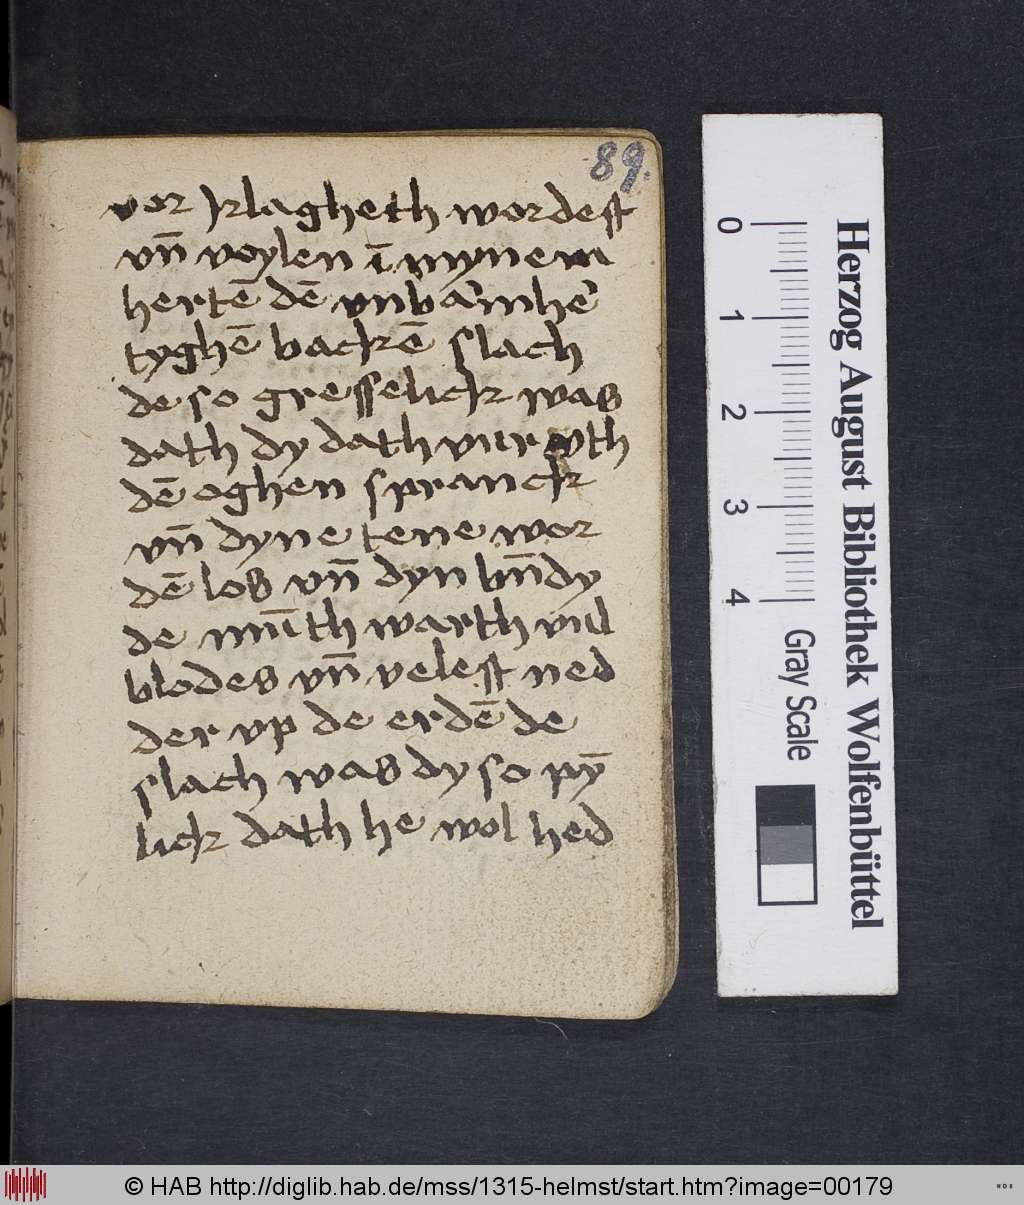 89.
vor Jrlagheth wordest
vn̄ voylen ī mynem
hertē dē vnbarmher
tyghē backē slach
de so gresselick was
dath dy dath vur vth
dē oghen spranck
vn̄ dyne tene wor
dē los vn̄ dyn bn̄dy
de mūth warth vul
blodes vn̄ velest ned
der vp de erdē de
slach was dy so pȳ
lick dath he wol hed
0
1
2
3
4
Gray Scale
Herzog August Bibliothek Wolfenbüttel
© HAB http://diglib.hab.de/mss/1315-helmst/start.htm?image=00179